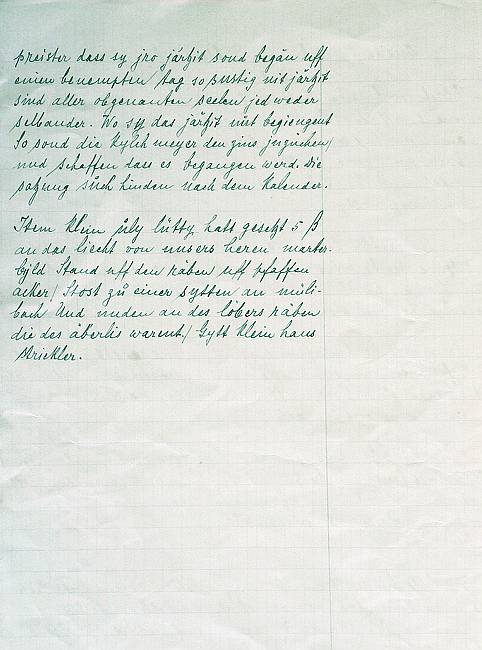 preister dass sy jro järhzit sond began uff
einen benempten tag so sustig nit järhzit
sind aller obgenanten seelen jed weder
selbander. Wo sy das järhzit nüt begiengent
So sond die Kylch meyer den zins inziehen/
und schaffen dass es begangen werd. Die
satzung such hinden nach dem Kalender.
Item Klein üly lütty hatt gesetzt 5 ß
an das liecht von unsers heren marter.
byld Stand uff den räben uff pfaffen
acker/ Stost zü einer sytten an müli-
bach Und unden an des löbers räben
die des äberlis warent/ Gytt Klein hans
Strickler.